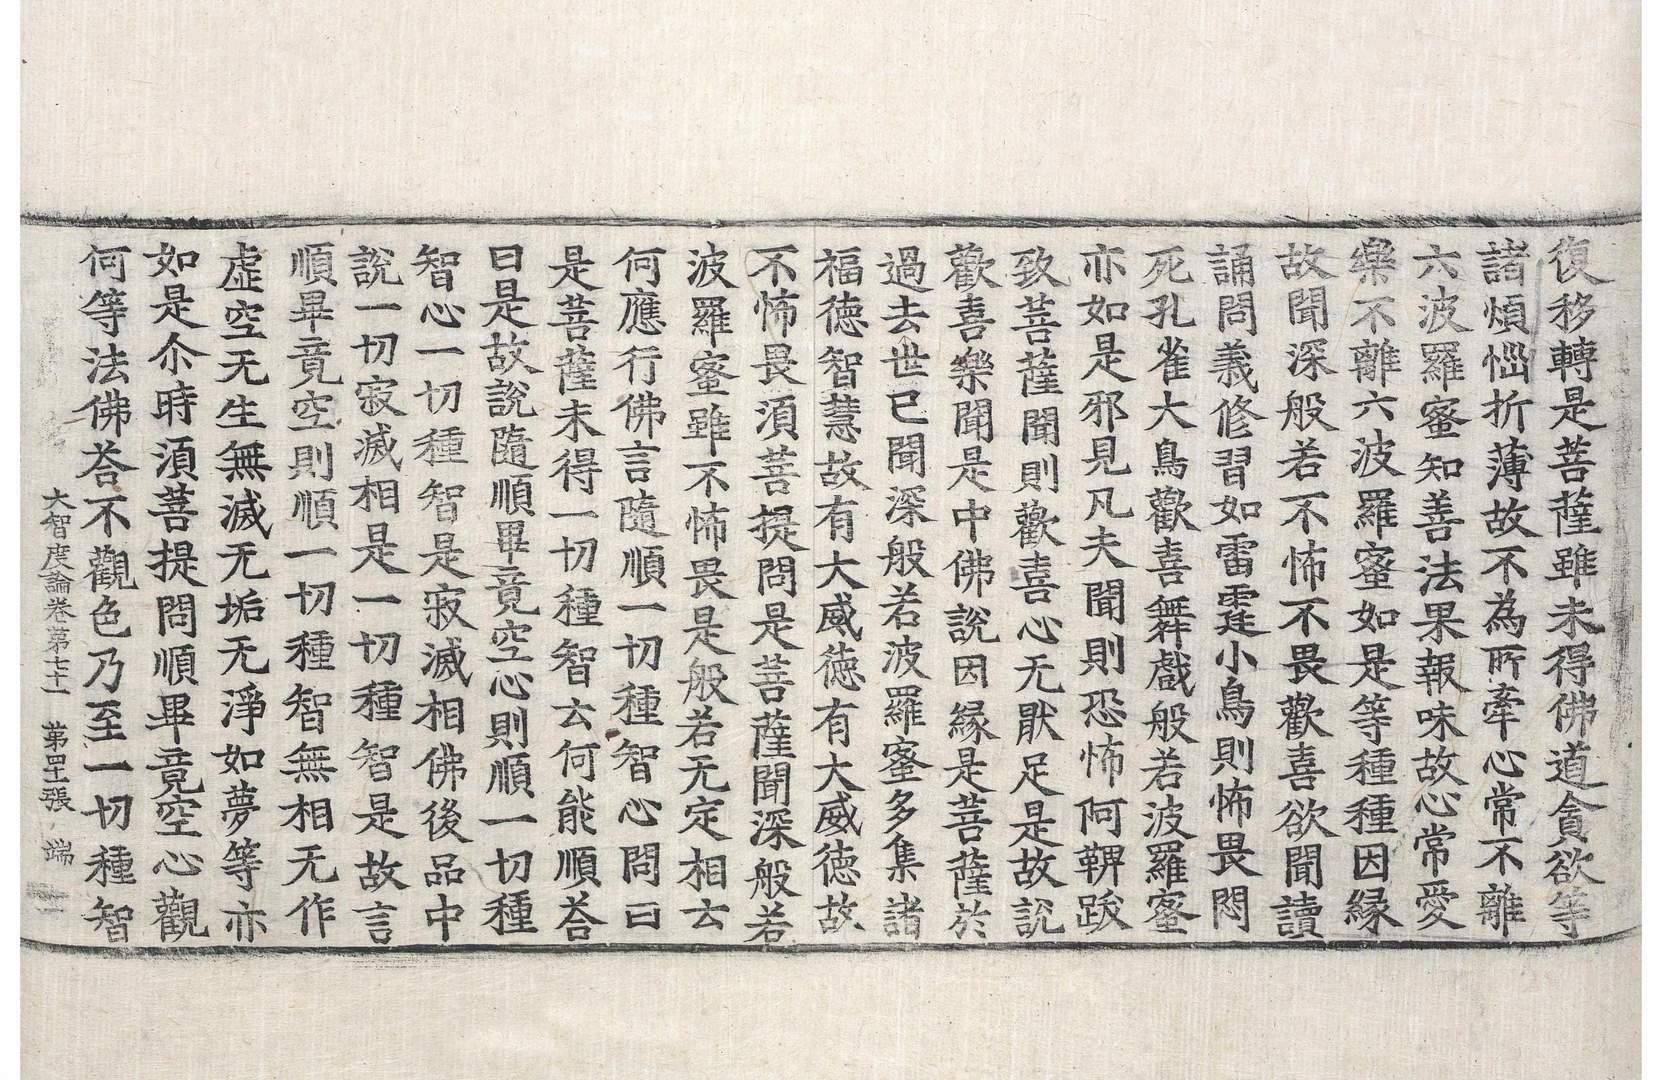 復移轉是菩薩雖未得佛道貪欲等
諸煩惱折薄故不為所牽心常不離
六波羅蜜知善法果報味故心常愛
樂不離六波羅蜜如是等種種因緣
故聞深般若不怖不畏歡喜欲聞讀
誦問義修習如雷霆小鳥則怖畏悶
死孔雀大鳥歡喜舞戲般若波羅蜜
亦如是邪見凡夫聞則恐怖阿鞞跋
致菩薩聞則歡喜心无猒足是故說
歡喜樂聞是中佛說因緣是菩薩於
過去世已聞深般若波羅蜜多集諸
福德智慧故有大威德有大威德故
不怖畏須菩提問是菩薩聞深般若
波羅蜜雖不怖畏是般若无定相云
何應行佛言隨順一切種智心問曰
是菩薩未得一切種智云何能順荅
曰是故說隨順畢竟空心則順一切種
智心一切種智是寂滅相佛後品中
說一切寂滅相是一切種智是故言
順畢竟空則順一切種智無相无作
虛空无生無滅无垢无淨如夢等亦
如是尒時須菩提問順畢竟空心觀
何等法佛荅不觀色乃至一切種智
大智度論卷第七十一 第四十張 端